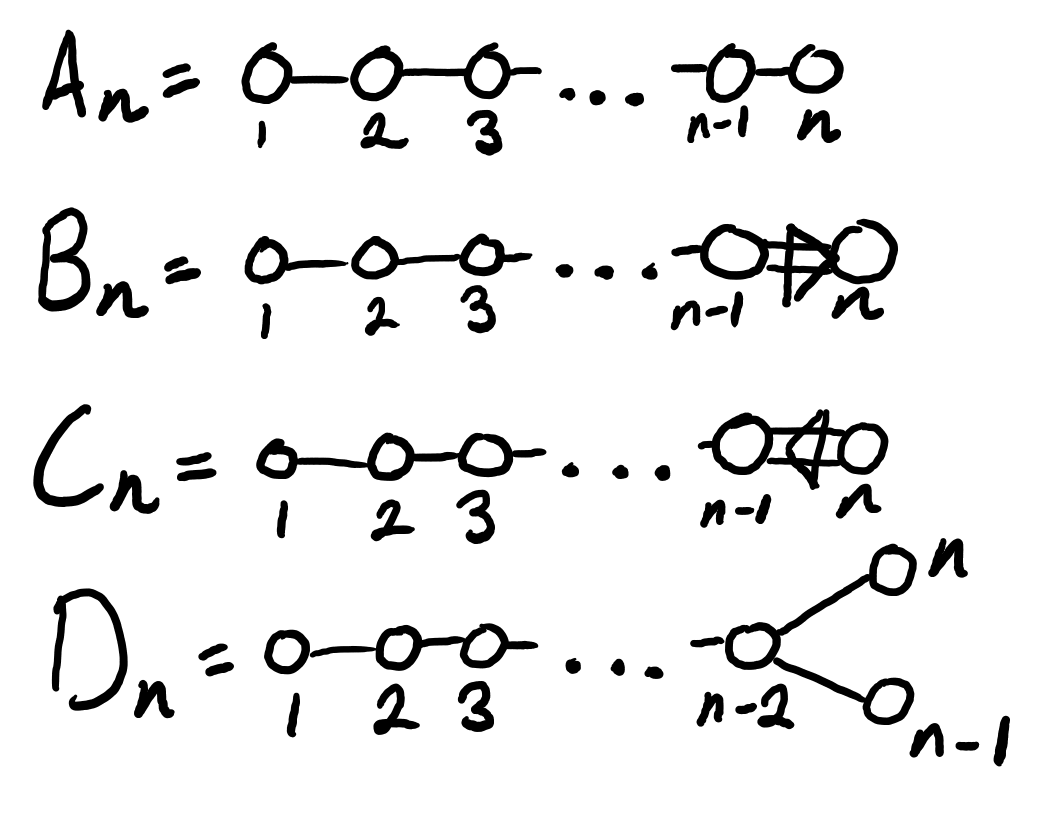 Aₙ =
1 2 3 ... n-1 n
Bₙ =
1 2 3 ... n-1 n
Cₙ =
1 2 3 ... n-1 n
Dₙ =
n
1 2 3 ... n-2
n-1